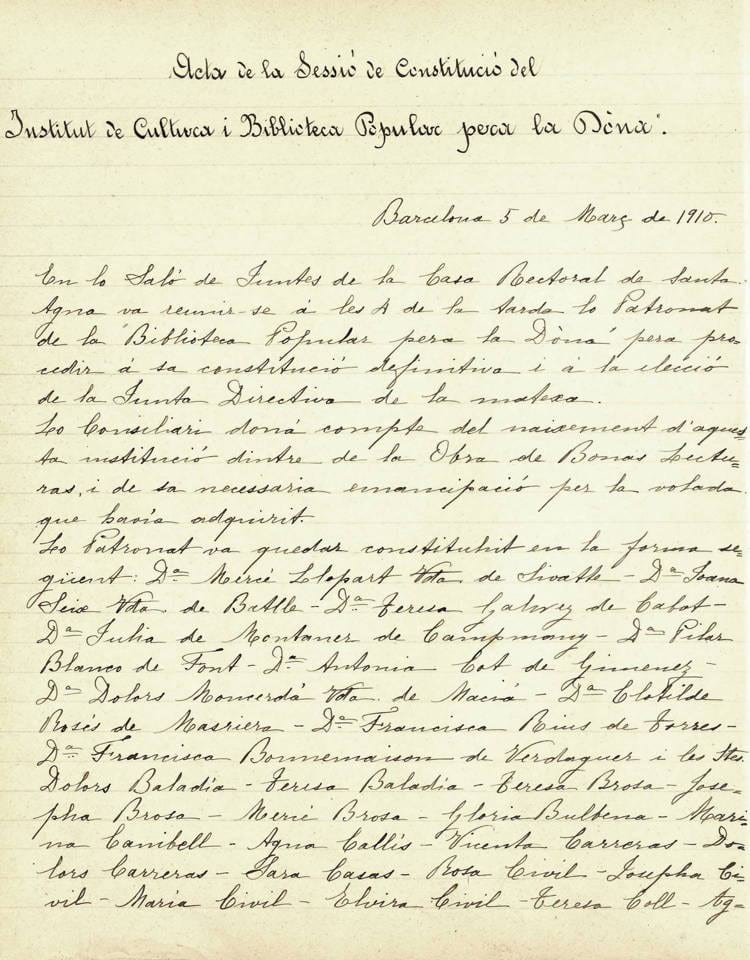 Acta de la Sessió de Constitució del
Institut de Cultura i Biblioteca Popular pera la Dòna".
Barcelona 5 de Març de 1910.
En lo Saló de Juntes de la Casa Rectoral de Santa
Agna va reunir-se á les 4 de la tarda lo Patronat
de la "Biblioteca Popular pera la Dòna" pera pro-
cedir á sa constitució definitiva i á la elecció
de la Junta Directiva de la matexa.
Lo Consiliari doná compte del naixement d'aques-
ta institució dintre de la Obra de Bonas Lectu-
ras, i de sa necessaria emancipació per la volada
que havía adquirit.
Lo Patronat va quedar constituhit en la forma se-
güent: Dª Mercé Llopart Vda de Sivatte - Dª Joana
Seix Vda. de Batlle - Dª Teresa de Calot -
Dª Julia de Montaner de Campmany - Dª Pilar
Blanco de Font - Dª Antonia Cot de Gimenez -
Dª Dolors Moncerdá Vda. de Maciá - Dª Clotilde
Rosés de Masriera - Dª Francisca Rius de Torres -
Dª Francisca Bonnemaison de Verdaguer i les Stes.
Dolors Baladía - Teresa Baladía - Teresa Brosa - Jose-
pha Brosa - Mercé Brosa - Gloria Bulbena - Mari-
na Canibell - Agna Callís - Vicenta Carreras - Do-
lors Carreras - Sara Casas - Rosa Civil - Josepha Ci-
vil - María Civil - Elvira Civil - Teresa Coll - Ag-